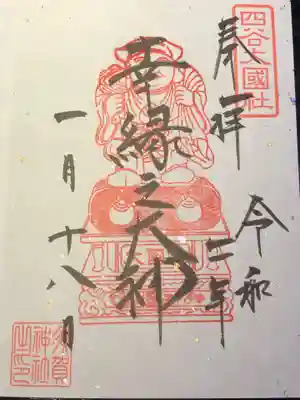 四谷大國社
奉拝
令和二年
幸縁之大神
一月十八日
須賀神社之印